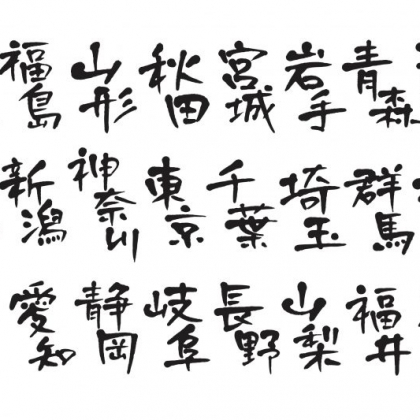 福島 山形 秋田 宮城 岩手 青森
新潟 神奈川 東京 千葉 埼玉 群馬
愛知 静岡 岐阜 長野 山梨 福井